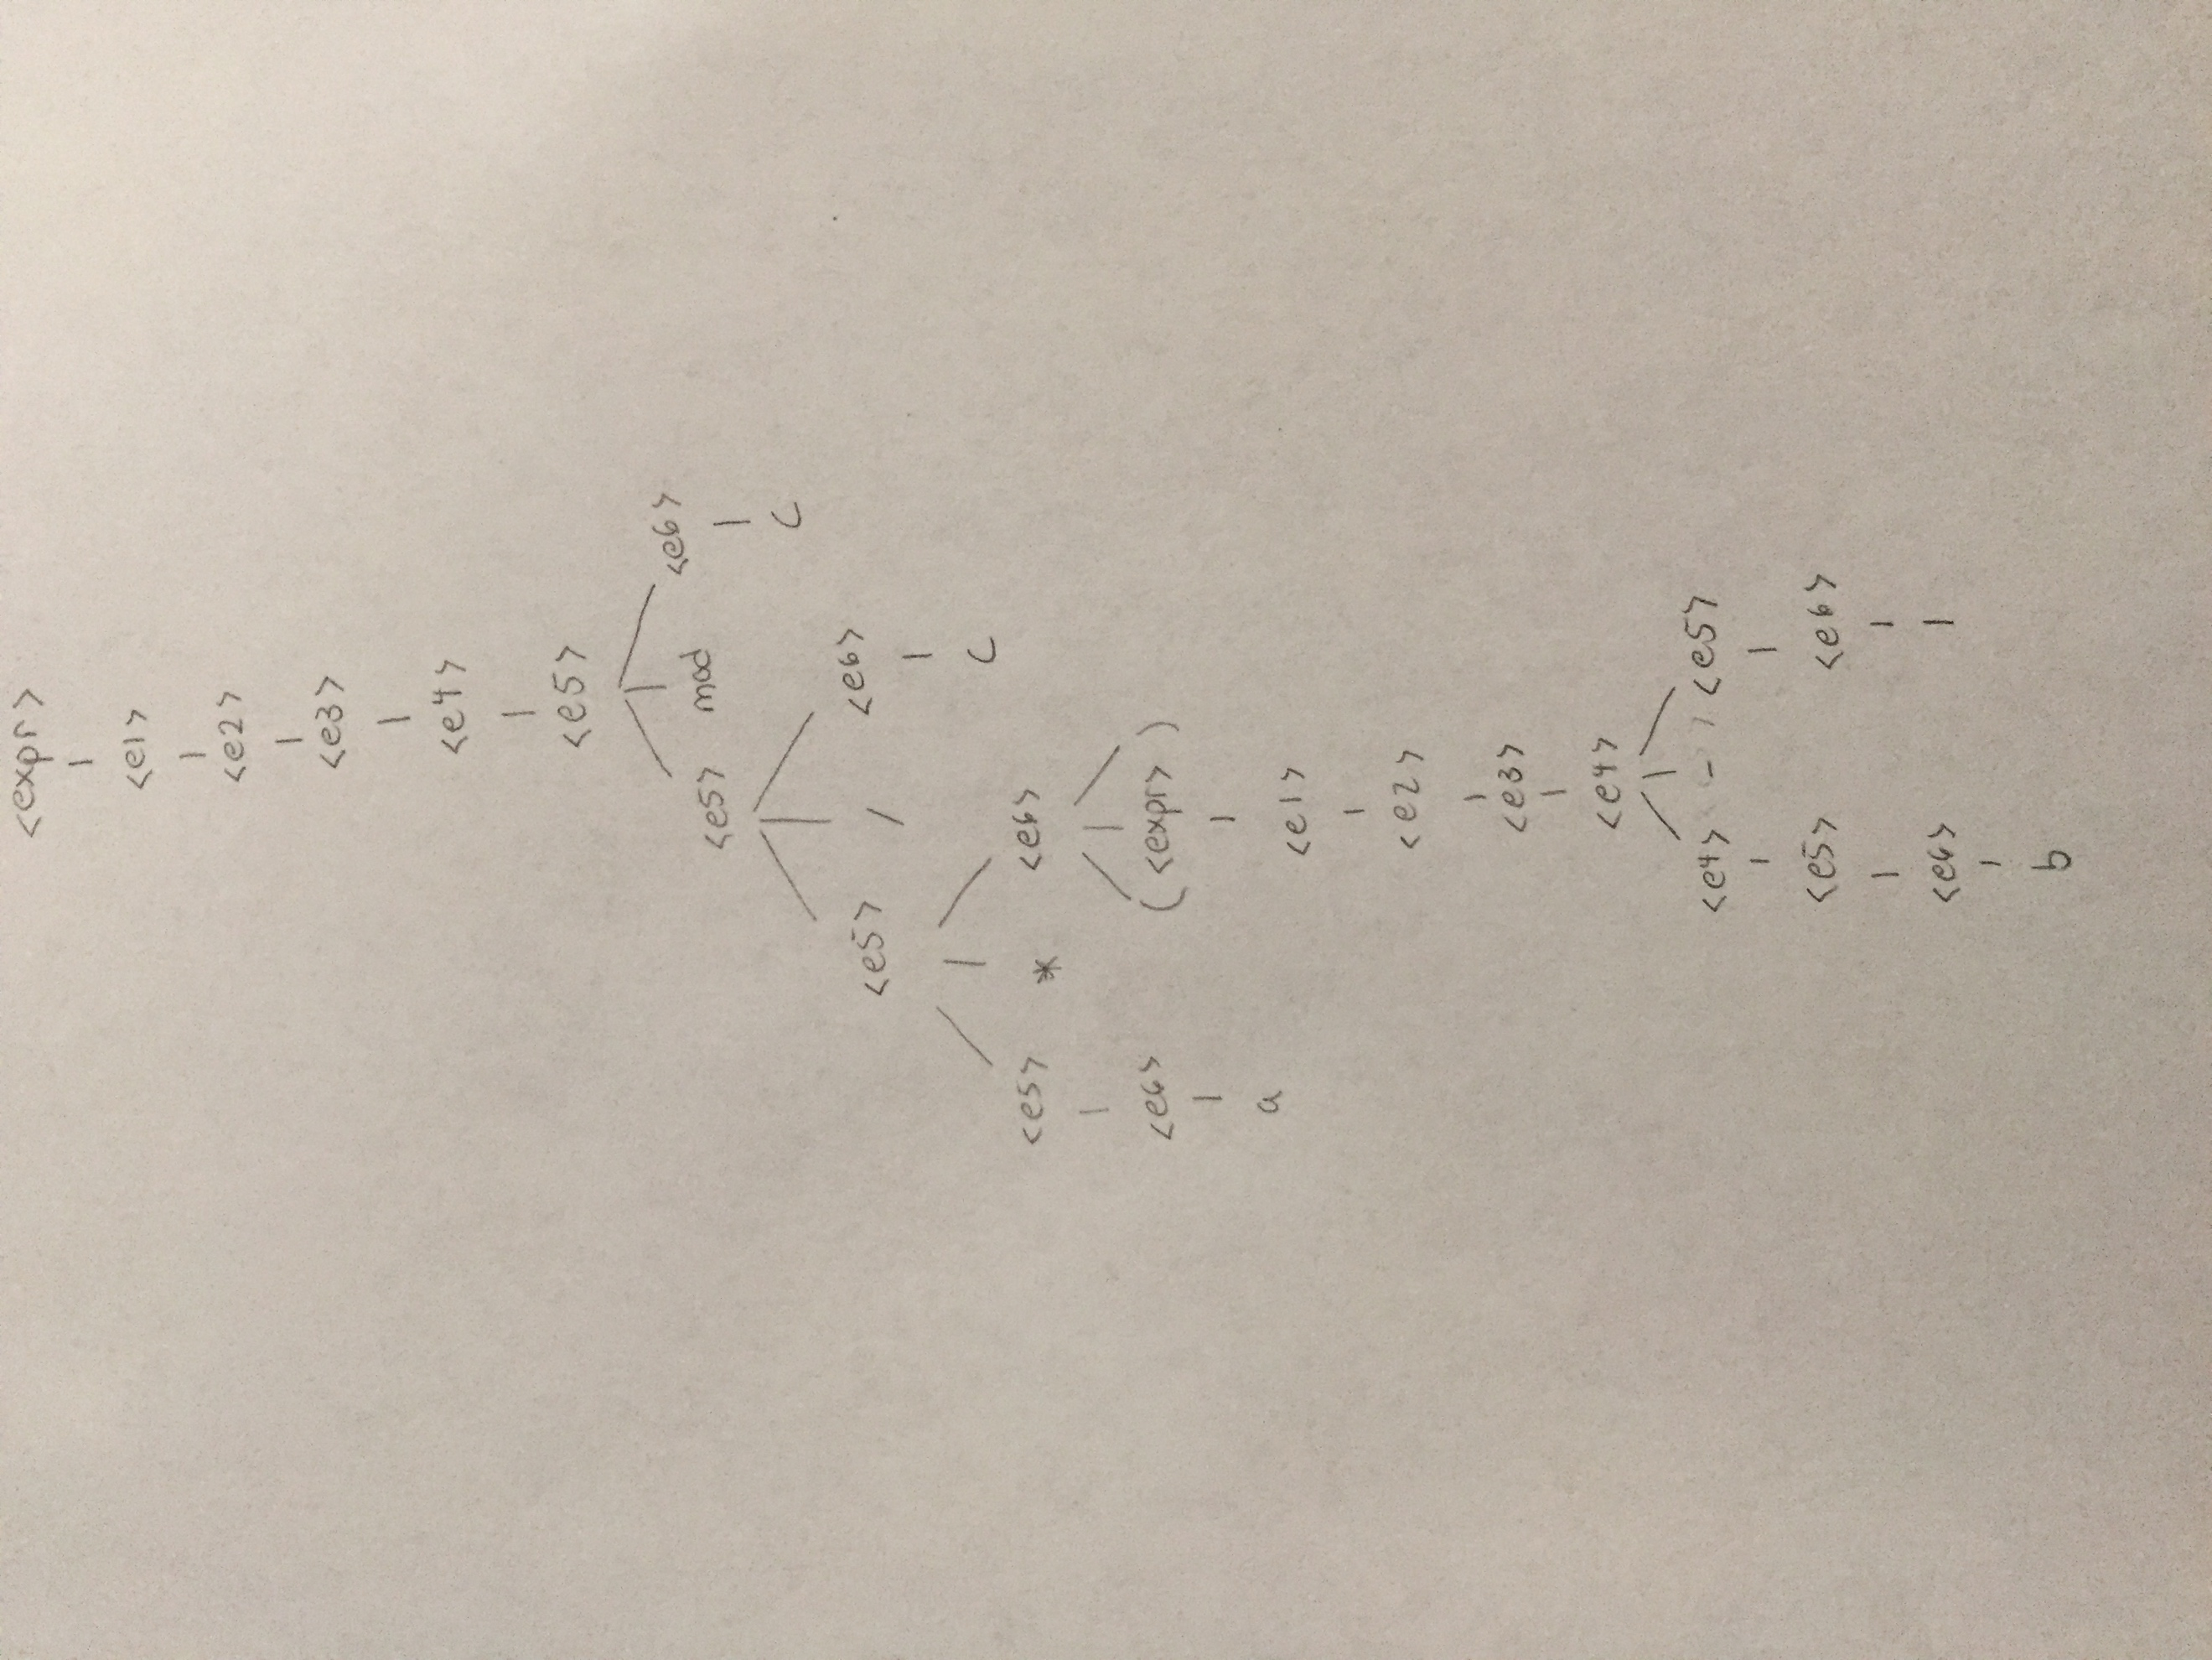 <expr>
<e1>
<e2>
<e3>
<e4>
<e5>
<e5> mod <e6>
c
<e5> / <e6>
c
<e5> * <e6>
<e6> ( <expr> )
a <e1>
<e2>
<e3>
<e4>
<e4> - <e5>
<e5> <e6>
<e6> 1
b